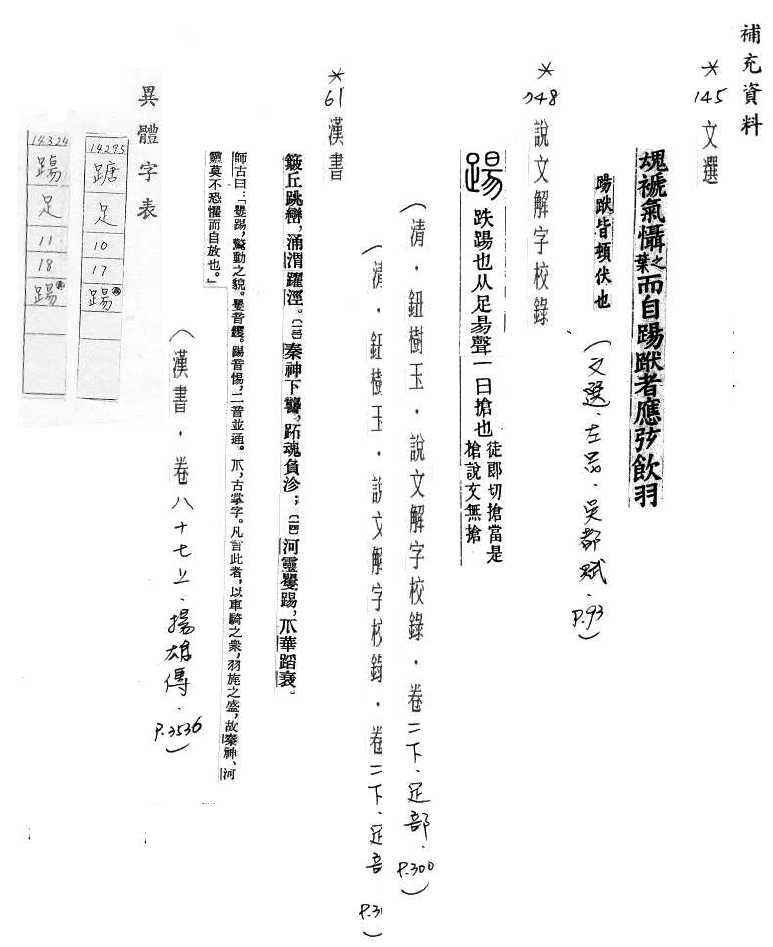 補充資料
*145 文選
魂褫氣懾之葉而自踢䟮者應弦飲羽
踢䟮皆頓伏也
(文選．左思．吳都賦．P.93)
*048 說文解字校錄
踼 跌踼也从足昜聲一曰搶也徒即切搶當是槍說文無搶
(清．鈕樹玉．說文解字校錄．卷二下．足部．P.300)
(清．鈕樹玉．說文解字校錄．卷二下．足音 P.31
*61 漢書
簸丘跳巒，涌渭躍涇。〔一三〕秦神下讋，跖魂負沴；〔一四〕河靈矍踢，爪華蹈衰。
師古曰：「矍踢，驚動之貌。矍音钁。踢音惕，二音並通。爪，古掌字。凡言此者，以車騎之衆，羽旄之盛，故秦神、河
靈莫不恐懼而自放也。」
(漢書．卷八十七上．揚雄傳．P.3536)
異體字表
14295 蹗 足 10 17 踼
14324 踼 足 11 18 踼